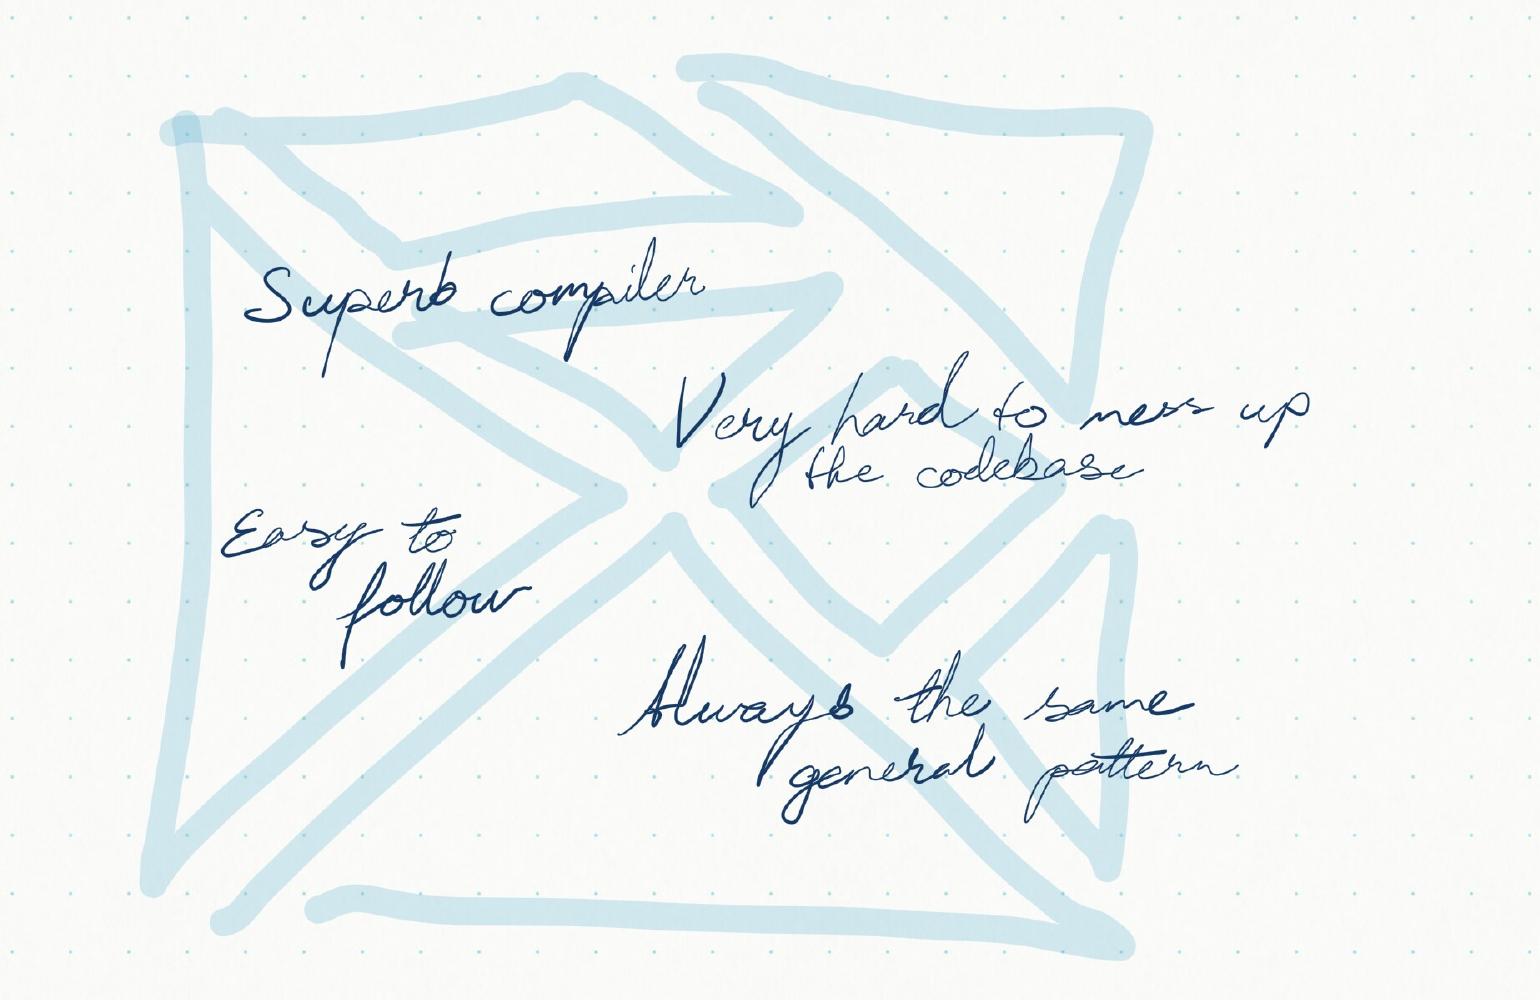 Superb compiler
Very hard to mess up
the codebase
Easy to
follow
Always the same
general pattern